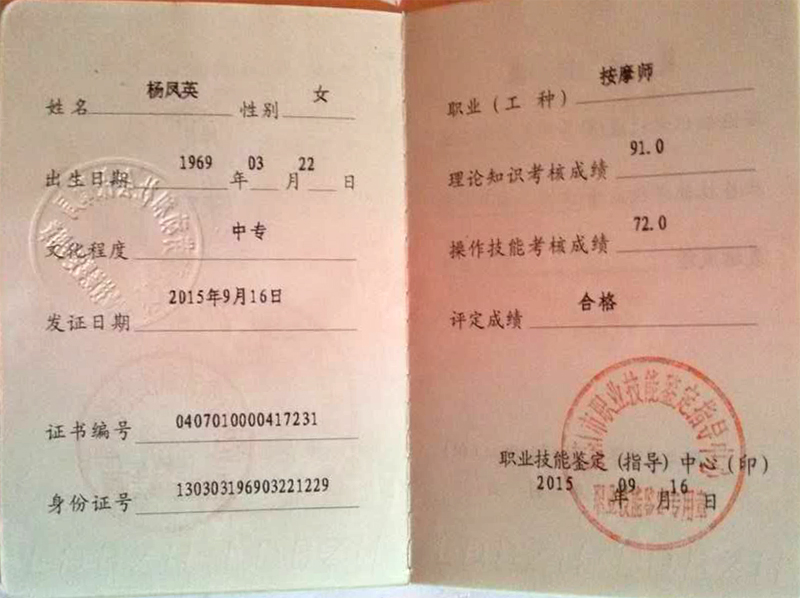 姓名 杨凤英 性别 女
出生日期 1969 年 03 月 22 日
文化程度 中专
发证日期 2015年9月16日
证书编号 0407010000417231
身份证号 130303196903221229
职业（工 种） 按摩师
理论知识考核成绩 91.0
操作技能考核成绩 72.0
评定成绩 合格
市职业技能鉴定指导中心
职业技能鉴定（指导）中心（印）
2015 年 09 月 16 日
职业技能鉴定专用章